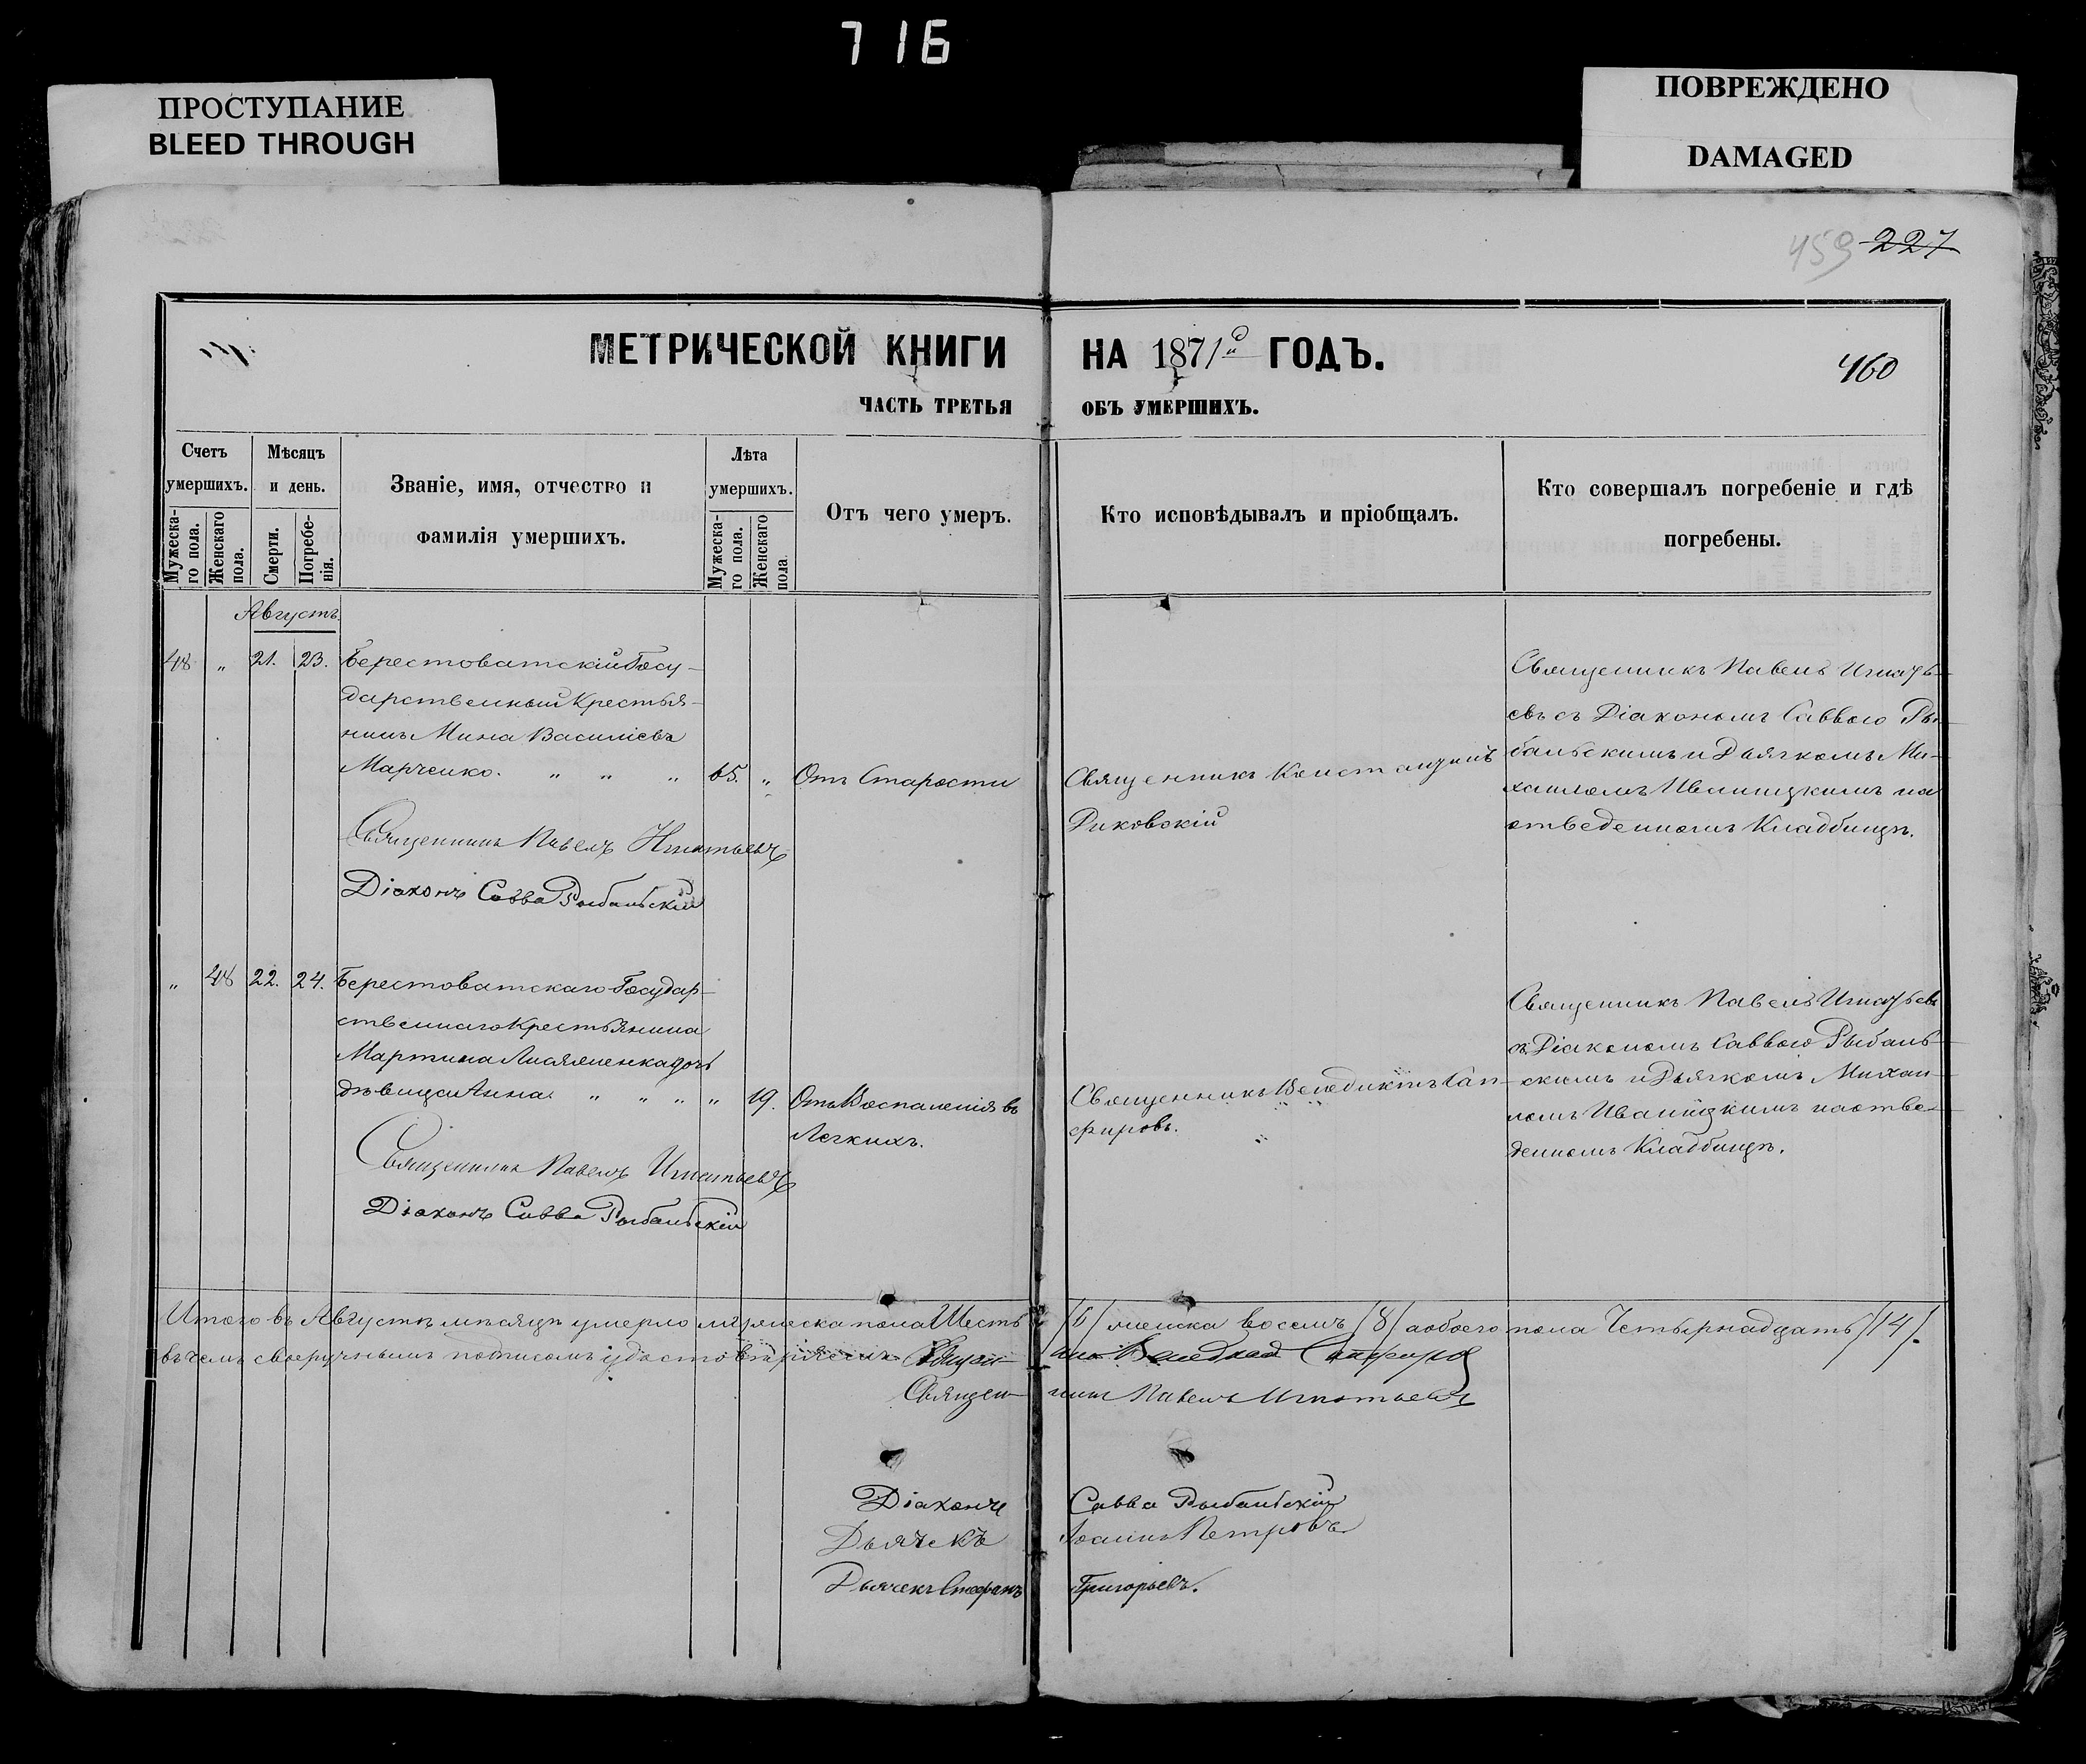 716
ПРОСТУПАНИЕ
BLEED THROUGH
ПОВРЕЖДЕНО
DAMAGED
459 227
МЕТРИЧЕСКОЙ КНИГИ НА 1871й ГОДЪ.
460
ЧАСТЬ ТРЕТЬЯ ОБЪ УМЕРШИХЪ.
Счетъ умершихъ.
Мужеска-го пола.
Женскаго пола.
Мѣсяцъ и день.
Смерти.
Погребе-нія.
Званіе, имя, отчество и
фамилія умершихъ.
Лѣта умершихъ.
Мужеска-го пола.
Женскаго пола
Отъ чего умеръ.
Кто исповѣдывалъ и пріобщалъ.
Кто совершалъ погребеніе и гдѣ
погребены.
Августъ.
48 „ 21. 23. Берестоватскій Госу-
дарственный Крестья-
нинъ Мина Василіевъ
Марченко. „ „ „ 65. „ Отъ Старости
Священникъ Константинъ
Риковскій
Священникъ Павелъ Игнатьь-
евъ съ Діакономъ Саввою Ры-
бальскимъ и Дьячкомъ Ми-
хаиломъ Иваницкимъ на
отведенномъ Кладбищѣ.
Священникъ Павелъ Игнатьевъ
Діаконъ Савва Рыбальскій
„ 48 22. 24. Берестоватскаго Государ-
ственнаго Крестьянина
Мартина дочь
дѣвица Анна. „ „ „ „ 19. Отъ Воспаленія въ
Легкихъ.
Священникъ Венедиктъ Сап-
фировъ. „
Священникъ Павелъ Игнатьевъ
съ Діакономъ Саввою Рыбаль-
скимъ и Дьячкомъ Михаи-
ломъ Иваницкимъ на отве-
денномъ Кладбищѣ.
Священникъ Павелъ Игнатьевъ
Діаконъ Савва Рыбальскій
Итого въ Августѣ мѣсяцѣ умерло мужеска пола Шесть /6/ женска восемь /8/ а обоего пола Четырнадцать /14/.
въ чемъ своеручнымъ подписомъ удостовѣряемъ Священникъ Венедиктъ Сапфировъ
Священникъ Павелъ Игнатьевъ
Діаконъ Савва Рыбальскій
Дьячекъ Іоаннъ Петровъ
Дьячекъ Стефанъ Григорьевъ.